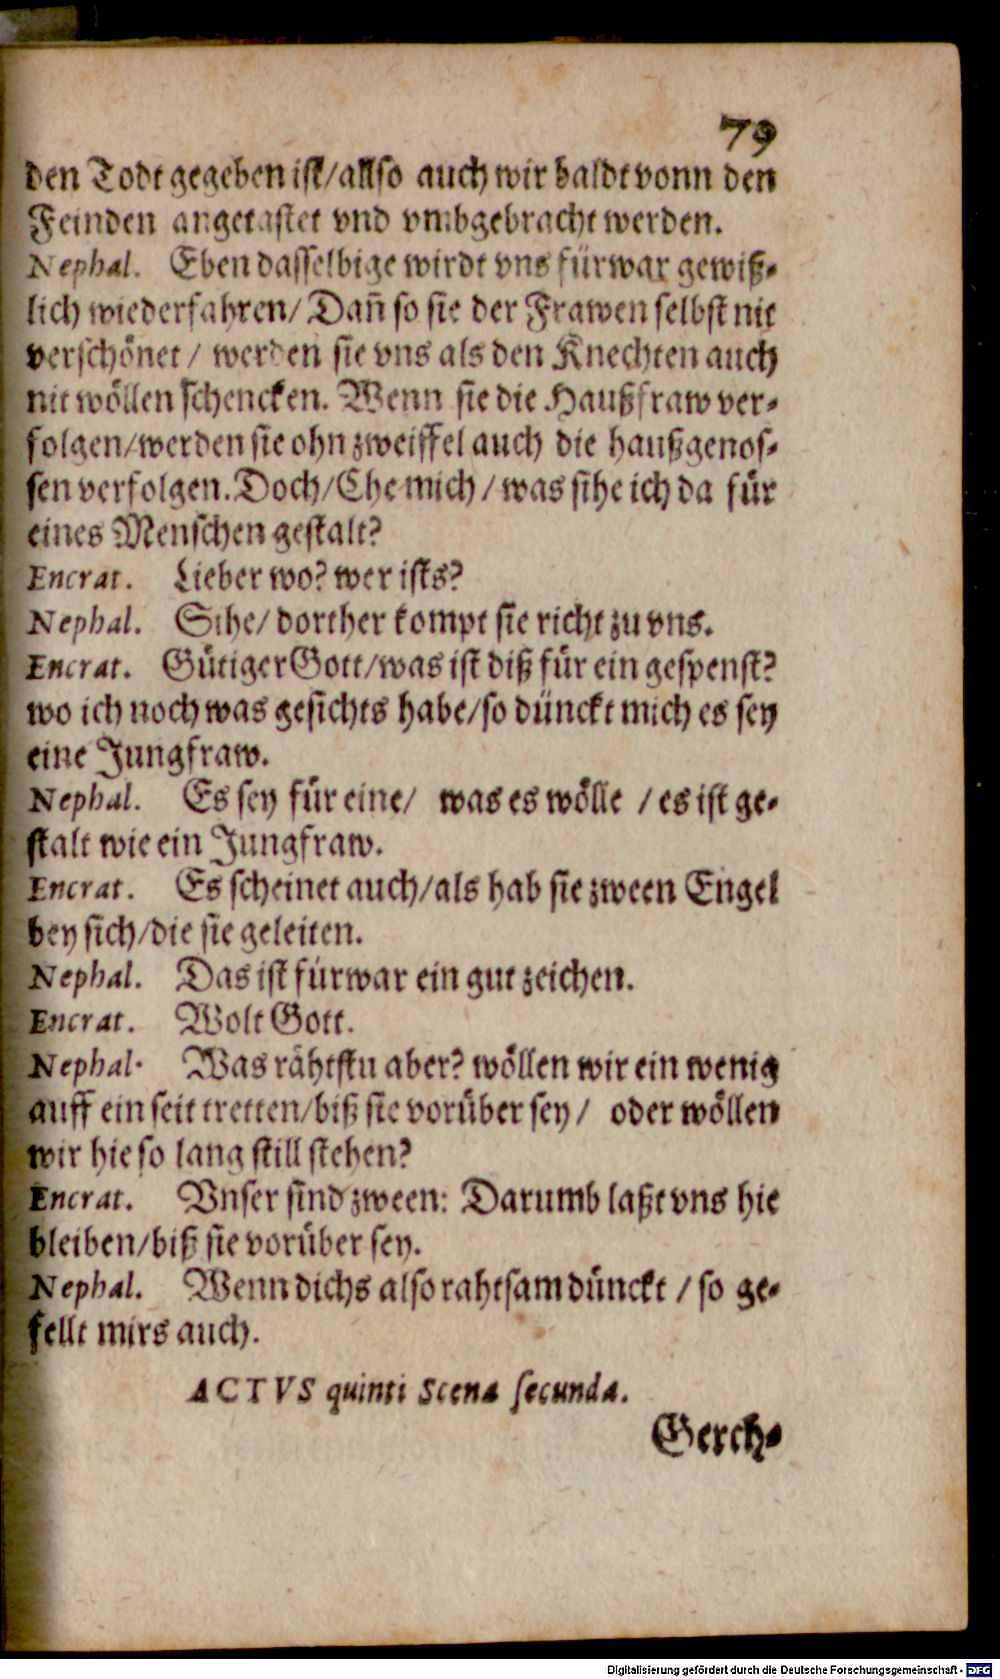 79
den Todt gegeben ist/allso auch wir baldt vonn den
Feinden angetastet vnd vmbgebracht werden.
Nephal. Eben dasselbige wirdt vns fürwar gewiß-
lich wiederfahren/ Dañ so sie der Frawen selbst nit
verschönet/ werden sie vns als den Knechten auch
nit wöllen schencken. Wenn sie die Haußfraw ver-
folgen/werden sie ohn zweiffel auch die haußgenos-
sen verfolgen. Doch/Ehe mich/ was sihe ich da für
eines Menschen gestalt?
Encrat. Lieber wo? wer ists?
Nephal. Sihe/ dorther kompt sie richt zu vns.
Encrat. Gütiger Gott/was ist diß für ein gespenst?
wo ich noch was gesichts habe/so dünckt mich es sey
eine Jungfraw.
Nephal. Es sey für eine/ was es wölle / es ist ge-
stalt wie ein Jungfraw.
Encrat. Es scheinet auch/als hab sie zween Engel
bey sich/die sie geleiten.
Nephal. Das ist fürwar ein gut zeichen.
Encrat. Wolt Gott.
Nephal. Was rähtstu aber? wöllen wir ein wenig
auff ein seit tretten/biß sie vorüber sey/ oder wöllen
wir hie so lang still stehen?
Encrat. Vnser sind zween: Darumb laßt vns hie
bleiben/biß sie vorüber sey.
Nephal. Wenn dichs also rahtsam dünckt / so ge-
fellt mirs auch.
ACTVS quinti Scena secunda.
Gerch-
Digitalisierung gefördert durch die Deutsche Forschungsgemeinschaft - DFG